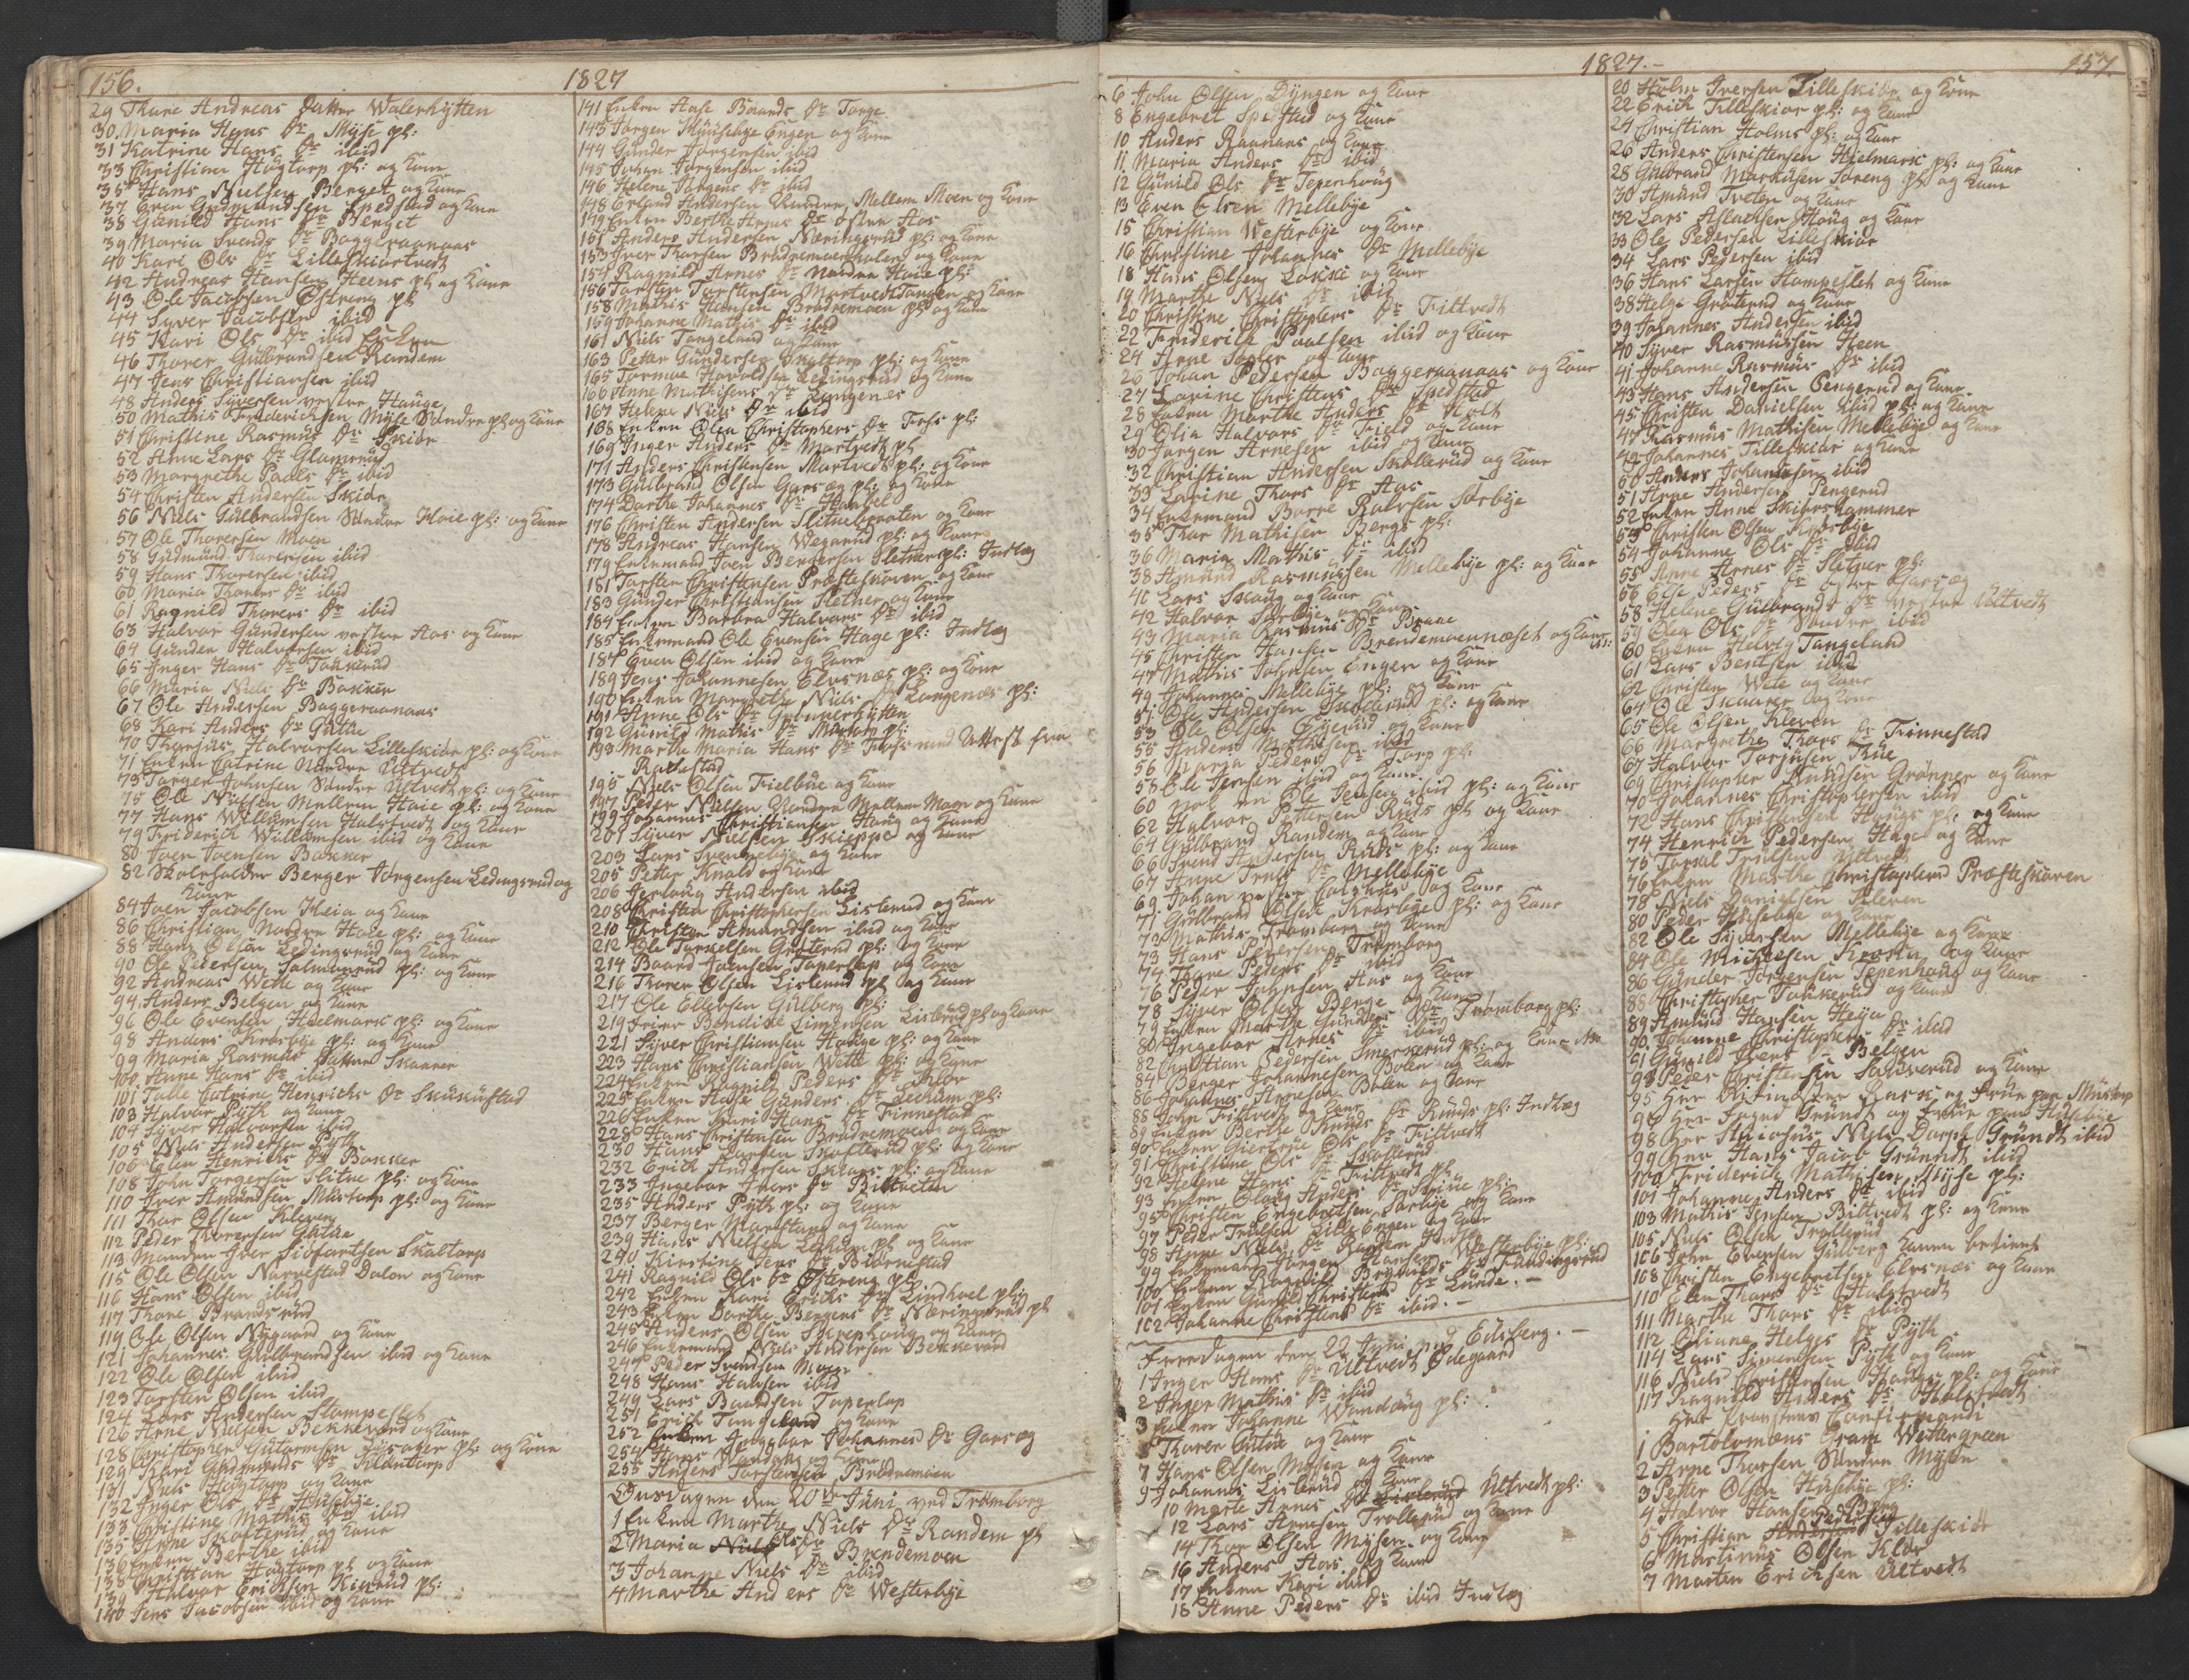 156.
1827
29 Thare Andreas Datter Walerhytten
30 Maria Hans Dr Myse pl:
31 Katrine Hans Dr ibid
33 Christian Haugtorp pl: og Kone
35 Hans Nielsen Berget og Kone
37 Even Gudmundsen Spedstad og Kone
38 Gunild Hans Dr Berget
39 Maria Svends Dr Baggeraanaas
40 Kari Ols Dr Lilleskiartvedt
42 Andreas Hansen Heens pl og Kone
43 Ole Jacobsen Østreng pl
44 Syver Jacobsen ibid
45 Kari Ols Dr ibid Enken
46 Thorer Gulbrandsen Randem
47 Jens Christiansen ibid
48 Anders Syversen vestre Hauge
50 Mathis Frederichsen Myse Søndre pl og Kone
51 Christine Rasmus Dr Skiør
52 Anne Lars Dr Glamsrud
53 Margrethe Poules Dr ibid
54 Christen Andersen Skiør
56 Niels Gulbrandsen Søndre Hoie pl: og Kone
57 Ole Thorersen Moen
58 Gudmund Thorersen ibid
59 Hans Thorersen ibid
60 Maria Thorers Dr ibid
61 Ragnild Thorers Dr ibid
63 Halvor Gundersen vestre Aas og Kone
64 Gunder Halvorsen ibid
65 Inger Hans Dr Takkerud
66 Maria Niels Dr Bakken
67 Ole Andersen Baggeraanaas
68 Kari Anders Dr Gutue
70 Thorsius Halvorsen Lilleskiør pl: og Kone
71 Enken Catrine Nordre Ultvedt
73 Torger Johnsen Søndre Ultvedt pl: og Kone
75 Ole Nielsen Mellem Hoie pl: og Kone
77 Hans Willumsen Halstvedt og Kone
79 Friderich Willumsen ibid og Kone
80 Joen Joensen Bakker
82 Skoleholder Berger Jørgensen Ledingsrud og
Kone
84 Joen Jacobsen Heia og Kone
86 Christian Nordre Hoie pl: og Kone
88 Hans Olsen Ledingsrud og Kone
90 Ole Petersen Salmonrud pl: og Kone
92 Andreas Wethe og Kone
94 Anders Belgen og Kone
96 Ole Evensen Hielmark pl: og Kone
98 Anders Krosbye pl: og Kone
99 Maria Rasmus Datter Skaarer
100 Anne Hans Dr ibid
101 Talle Catrine Henrichs Dr Skukustad
103 Halvor Pyth og Kone
104 Syver Halvorsen ibid
105 Niels Andersen Pyth
106 Elen Henrichs Dr Bakker
108 John Torgersen Slitne pl: og Kone
110 Iver Amundsen Mustorp pl: og Kone
111 Thor Olsen Kleven
112 Peder Torersen Gutue
113 Manden Iver Siofartsen Skaltorp
115 Ole Olsen Narvestad Dalen og Kone
116 Hans Olsen ibid
117 Thore Brandsrud
119 Ole Olsen Nygaard og Kone
121 Johannes Gulbrandsen ibid og Kone
122 Ole Olsen ibid
123 Torsten Olsen ibid
124 Lars Andersen Stampeslet
126 Arne Nielsen Bekkevard og Kone
128 Christopher Gutormsen Hysager pl: og Kone
129 Kari Gudmunds Dr Kilentorp
131 Niels Haugtorp og Kone
132 Inger Ols Dr Husebye
133 Christine Mathis Dr ibid
135 Arne Skofterud og Kone
136 Enken Berthe ibid
138 Christian Haugtorp pl og Kone
139 Halvor Erichsen Kierud pl:
140 Jens Jacobsen ibid og Kone
141 Enken Aase Baards Dr Torge
143 Jørgen Huusebye Engen og Kone
144 Gunder Jørgensen ibid
145 Johan Jørgensen ibid
146 Helene Jørgens Dr ibid
148 Erland Andersen Nordre Mellem Moen og Kone
149 Enken Berthe Arnes Dr østre Aas
151 Anders Andersen Næringsrud pl: og Kone
153 Iver Thorsen Brødremoenholen og Kone
154 Ragnild Arnes Dr Nordre Hoie pl:
156 Torsten Torstensen Mortvedt Tangen og Kone
158 Mathis Hansen Brødremoen pl og Kone
159 Johanne Mathis Dr ibid
161 Niels Tangeland og Kone
163 Petter Gundersen Skaltorp pl: og Kone
165 Tormoe Haraldsen Ledingsrud og Kone
166 Anne Mathisens Dr Langenes
167 Helene Niels Dr ibid
168 Enken Olea Christophers Dr Fosss pl:
169 Inger Anders Dr Mortvedt pl
171 Anders Christensen Mortvedt pl: og Kone
173 Gulbrand Olsen Garseg pl: og Kone
174 Dorthe Johannes Dr Haabel
176 Christen Andersen Slitnebraaten og Kone
178 Andreas Hansen Wegarud pl: og Kone
179 Enkemand Joen Bergersen Sletner pl: Indlæg
181 Torsten Christensen Præsteskoven og Kone
183 Gunder Christiansen Sletner og Kone
184 Enken Barbra Halvors Dr ibid
185 Enkemand Ole Evensen Hage pl: Indlæg
187 Even Olsen ibid og Kone
189 Jens Johannesen Elvsnæs pl: og Kone
190 Enken Margrethe Niels Dr Langenæs pl:
191 Anne Ols Dr Grønnerhytten
192 Gunild Mathis Dr Mustorp pl:
193 Marthe Maria Hans Dr Fosss med Attest fra
Rakkestad
195 Niels Olsen Fielbue og Kone
197 Peder Nielsen Nordre Mellem Moen og Kone
199 Johannes Christiansen Haug og Kone
201 Syver Nielsen Skieppe og Kone
203 Lars Svennebye og Kone
205 Petter Knold og Kone
206 Gerloug Andersen ibid
208 Christen Christophersen Lislerud og Kone
210 Christen Amundsen ibid og Kone
212 Ole Torkelsen Grøterud pl: og Kone
214 Baard Joensen Toperlop og Kone
216 Thorer Olsen Lislerud pl og Kone
217 Ole Ellevsen Gulberg pl:
219 Peter Bendixe Simensen Lislerud pl og Kone
221 Syver Christiansen Hauge pl: og Kone
223 Hans Christiansen Wette pl: og Kone
224 Enken Ragnild Peders Dr Klor
225 Enken Aase Gunders Dr Lekum pl:
226 Enken Kari Hans Dr Finnestad
228 Hans Christensen Brødremoen og Kone
230 Hans Larsen Skofterud pl: og Kone
232 Erich Andersen Sklaas pl: og Kone
233 Ingebor Ivers Dr Biltveten
235 Anders Pyth pl: og Kone
237 Berger Marstang og Kone
239 Hans Nielsen Lekum pl og Kone
240 Kirstine Jens Dr Biørnestad
241 Ragnild Ols Dr Østereng pl
242 Enken Kari Erichs Dr Lindhoel pl:
243 Enken Dorthe Bergers Dr Næringsrud pl
245 Anders Olsen Skrephoug og Kone
246 Enkemand Niels Andersen Bekkevard
247 Peder Svendsen Moen
248 Hans Hansen ibid
249 Lars Baardsen Toperlop
251 Erich Tangeland og Kone
252 Enken Ingebor Johannes Dr Garseg
254 Hans Wandoug og Kone
255 Anders Torstensen Brødremoen
Onsdagen den 20de Juni ved Trømborg
1 Enken Marthe Niels Dr Randem pl
2 Maria Niels Ols Dr Brendemoen
3 Johanne Niels Dr ibid
4 Marthe Anders Dr Westerbye
1827.-
157.
6 John Olsen Dyngen og Kone
8 Engebret Spedstad og Kone
10 Anders Raanaas og Kone
11 Maria Anders Dr ibid
12 Gunild Ols Dr Tepenhoug
13 Even Elsen Mellebye
15 Christian Westerbye og Kone
16 Christine Johannes Dr Mellebye
18 Hans Olsen Løkke og Kone
19 Marthe Niels Dr ibid
20 Christine Christophers Dr Tiltvedt
22 Friderich Poulsen ibid og Kone
24 Arne og Kone
26 Johan Pedersen Baggeraanaas og Kone
27 Lovine Christens Dr Spedstad
28 Enken Marthe Anders Dr Holt
29 Olia Halvors Dr Field og Kone
30 Jørgen Arnesen ibid og Kone
32 Christian Andersen Skollerud og Kone
33 Lovine Thors Dr Aas
34 Enkemand Borre Roersen Sørbye
35 Thor Mathisen Bergs pl:
36 Maria Mathis Dr ibid
38 Amund Rasmussen Mellebye pl: og Kone
40 Lars Skoug og Kone
42 Halvor Sørbye og Kone
43 Maria Rasmus Dr Braae
45 Christen Hansen Brendemoenneset og Kone
47 Mathis Johnsen Engen og Kone
49 Johannes Mellebye pl: og Kone
51 Ole Andersen Skollerud pl: og Kone
53 Ole Olsen og Kone
55 Anders Mathisen ibid
56 Maria Peders Dr Torp pl:
58 Ole Jensen ibid og Kone
60 nok en Ole Jensen ibid pl: og Kone
62 Halvor Pettersen Ruds pl og Kone
64 Gulbrand Randem og Kone
66 Svend Andersen Ruds pl: og Kone
67 Anne Arnes Dr Mellebye
69 Johan og Kone
71 Gulbrand Olsen Krosbye pl: og Kone
72 Mathis Tromborg og Kone
73 Hans Pedersen Tromborg
74 Thore Peders Dr ibid
76 Peder Johnsen Aas og Kone
78 Syver Olsen Berge og Kone
79 Enken Marthe Gunders Dr Tromborg pl:
80 Ingebor Arnes Dr ibid
82 Christian Pedersen Smerkerud pl: og Kone
84 Berger Johannesen Bolen og Kone
86 Johannes Arnesen Bolen og Kone
88 John Tiltvedt og Kone
89 Enken Berthe Knuds Dr Ruuds pl: Indlæg
90 Enken Giertrue Ols Dr Tiltvedt
91 Christine Ols Dr Skollerud
92 Helene Hans Dr Tiltvedt pl
93 Enken Oloug Anders Dr pl:
95 Christen Engebretsen Sørbye og Kone
97 Peder Truelsen Lille Engen og Kone
98 Anne Niels Dr Randem Indl:
99 Enkemand Jørgen Hansen Westerbye pl:
100 Enken Ragnild Brynilds Dr Fundingsrud
101 Enken Gunild Christens Dr Lunde.-
102 Johanne Christens Dr ibid.-
Fredagen den 22 Juni ved Edsberg.-
1 Inger Hans Dr Ultvedt Ødegaard
2 Inger Mathis Dr ibid
3 Enken Johanne Wandoug pl:
5 Thorer Gutue og Kone
7 Hans Olsen Mysen og Kone
9 Johannes Lislerud og Kone
10 Marte Arnes Dr Lislerud Ultvedt pl:
12 Lars Arnesen Trollerud og Kone
14 Thor Olsen Mysen og Kone
16 Anders Aas og Kone
17 Enken Kari ibid
18 Anne Peders Dr ibid Indlæg
20 Holm Iversen Lilleskiør og Kone
22 Erich Lilleskiør pl: og Kone
24 Christian Holms pl: og Kone
26 Anders Christensen Hielmark pl: og Kone
28 Gulbrand Markusen Foreng pl og Kone
30 Amund Tveten og Kone
32 Lars Aslachsen Houg og Kone
33 Ole Pedersen Lilleskiør
34 Lars Pedersen ibid
36 Hans Larsen Stampeslet og Kone
38 Helge Grøterud og Kone
39 Johannes Andersen ibid
40 Syver Rasmussen Heen
41 Johanne Rasmus Dr ibid
43 Hans Andersen Pengerud og Kone
45 Christen Danielsen ibid pl: og Kone
47 Rasmus Mathisen Mellebye og Kone
49 Johannes Lilleskiør og Kone
50 Anders Johannesen ibid
51 Arne Andersen Pengerud
52 Enken Anne Skibershammer
53 Christen Olsen Krosbye
54 Johanne Ols Dr ibid
55 Anne Arnes Dr Sletner pl:
56 Else Peders Dr østre Garseg
58 Helene Gulbrands Dr vestre Ultvedt
59 Olea Ols Dr Søndre ibid
60 Enken Helvig Tangeland
61 Lars Bentsen ibid
62 Christen Wete og Kone
64 Ole Skaarer og Kone
65 Ole Olsen Kleven
66 Margrethe Thors Dr Finnestad
67 Halvor Torjusen Hue
69 Christopher Knudsen Grønner og Kone
70 Johannes Christophersen ibid
72 Hans Christensen Hougs pl: og Kone
74 Henrich Pedersen Hage og Kone
75 Torkel Truelsen Ultvedt
76 Enken Marthe Christophersd Præsteskoven
78 Niels Danielsen Kleven
80 Peder Husebye og Kone
82 Ole Syversen Mellebye og Kone
84 Ole Michelsen Kroken og Kone
86 Gunder Jørgensen Tepenhoug og Kone
88 Christopher Takkerud og Kone
89 Amund Hansen Heya
90 Johanne Christophers Dr ibid
91 Gunild Ivers Dr Belgen
93 Peder Christensen og Kone
95 Herr og Frue paa Mustorp
96 Herr Foged Grundt og Frue paa Husebye
98 Herr Niels Dorph Grundt ibid
99 Herr Hans Jacob Grundt ibid
100 Friderich Mathisen Mysse pl:
101 Johanne Anders Dr ibid
103 Mathis Jensen Biltvedt pl: og Kone
105 Niels Olsen Trollerud
106 John Evensen Gulberg Konen betient
108 Christen Engebretsen Elvsnæs og Kone
110 Elen Thors Dr Halstvedt
111 Marthe Thors Dr ibid
112 Oliane Helges Dr Pyth
114 Lars Simensen Pyth og Kone
116 Niels Christensen Hougs pl: og Kone
117 Ragnild Anders Dr Halstvedt
Confirmandi
1 Bartolomæus Gram Wettergreen
2 Arne Thorsen Søndre Mysen
3 Petter Olsen Husebye pl:
4 Halvor Hansen Berg
5 Christian Andersen Pedersen Lilleskiør
6 Martinus Olsen Klør
7 Morten Erichsen Ultvedt